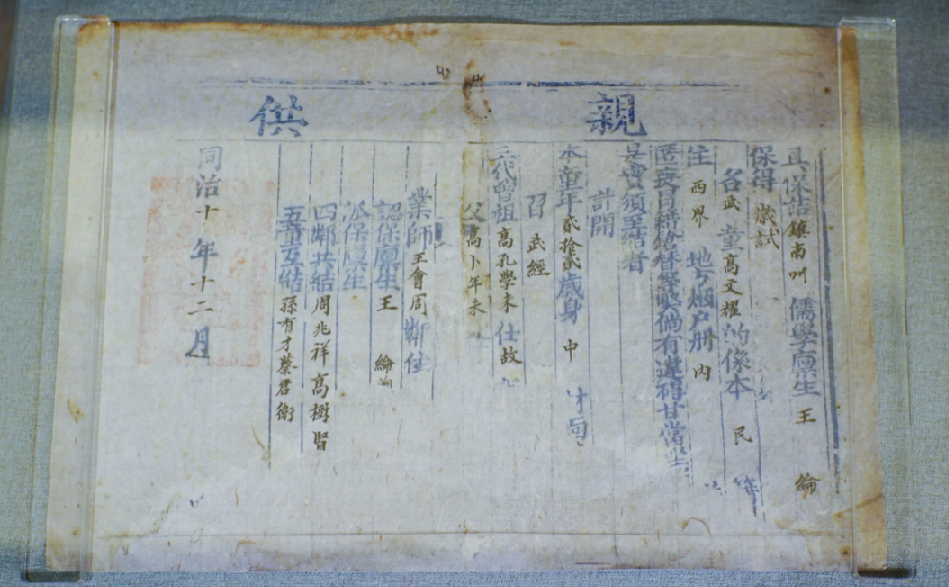 親供
具保結鎮南州儒學廩生王綸
保得歲試
名武童高文耀的係本民
住西界地方烟户册内
匿喪冒籍鎗替等弊倘有違碍甘當
是實須至結者
計開
本童年貳拾貳歲身中
習武經
三代曾祖高孔學未仕故
父高卜年未
業師王會周鄰住
認保廩生王綸
派保廩生
四鄰共結周兆祥高樹賢
五童互結孫有才蔡君衛
同治十年十二月